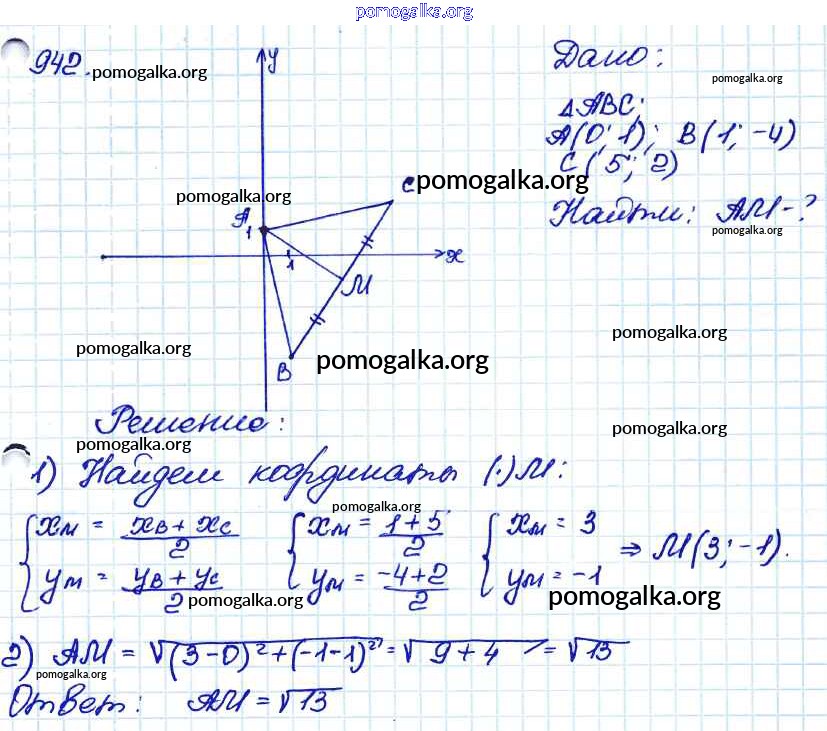 pomogalka.org
942. pomogalka.org
y
Дано:
pomogalka.org
△ABC;
A(0; 1); B(1; -4)
C(5; 2)
Найти: AM-?
pomogalka.org
C pomogalka.org
pomogalka.org
A
1
1
x
M
B
pomogalka.org
pomogalka.org
pomogalka.org
Решение:
pomogalka.org
pomogalka.org
1) Найдем координаты (·)M:
pomogalka.org
{ xM = (xB + xC)/2 { xM = (1+5)/2 { xM = 3
yM = (yB + yC)/2 yM = (-4+2)/2 yM = -1 ⇒ M(3; -1).
pomogalka.org pomogalka.org
2) AM = √((3-0)²+(-1-1)²) = √(9+4) = √13
pomogalka.org
Ответ: AM = √13